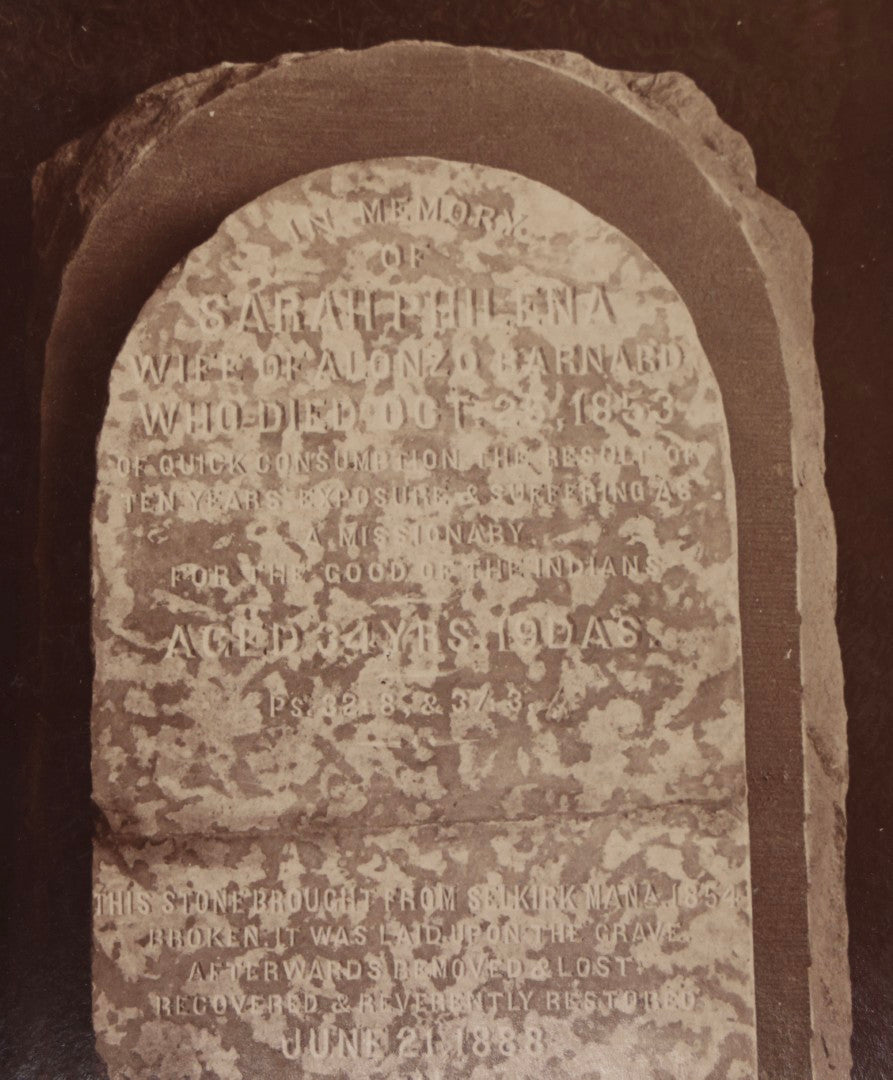 IN MEMORY
OF
SARAH PHILENA
WIFE OF ALONZO BARNARD
WHO DIED OCT. 25, 1853
OF QUICK CONSUMPTION THE RESULT OF
TEN YEARS EXPOSURE & SUFFERING AS
A MISSIONARY
FOR THE GOOD OF THE INDIANS
AGED 34 YRS. 19 DAS.
Ps. 32. 8. & 37. 3.
THIS STONE BROUGHT FROM SELKIRK MANA. 1854
BROKEN. IT WAS LAID UPON THE GRAVE
AFTERWARDS REMOVED & LOST;
RECOVERED & REVERENTLY RESTORED
JUNE 21 1888